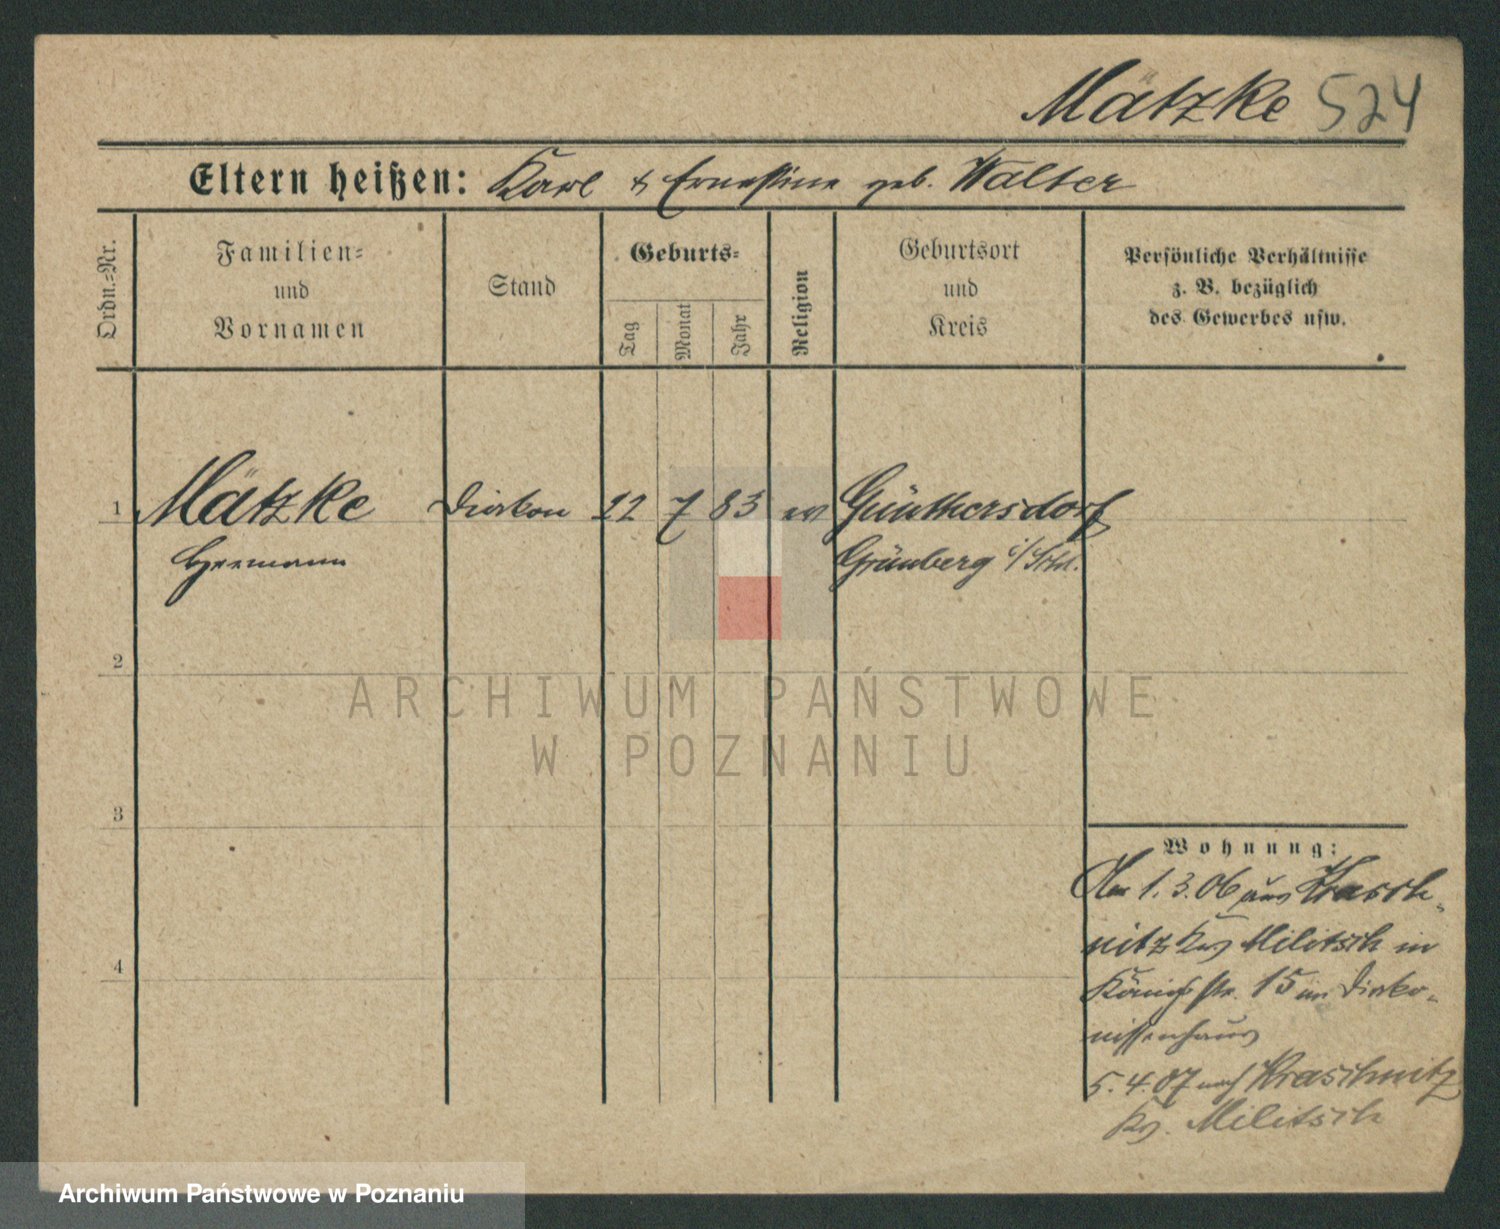 Mätzke 524
Eltern heißen: Karl & Ernestine geb. Walter
Ordn.-Nr.
Familien-
und
Vornamen
Stand
Geburts-
Tag
Monat
Jahr
Religion
Geburtsort
und
Kreis
Persönliche Verhältnisse
z. B. bezüglich
des Gewerbes usw.
1 Mätzke Diakon 22 7 83 ev Günthersdorf
Hermann Grünberg i/Schl.
2
ARCHIWUM PAŃSTWOWE
W POZNANIU
3
Wohnung:
Am 1.3.06 aus Krasch-
nitz Krs Militsch in
4
Königstr. 15 im Diako-
nissenhaus
5.4.07 nach Kraschnitz
Krs. Militsch
Archiwum Państwowe w Poznaniu